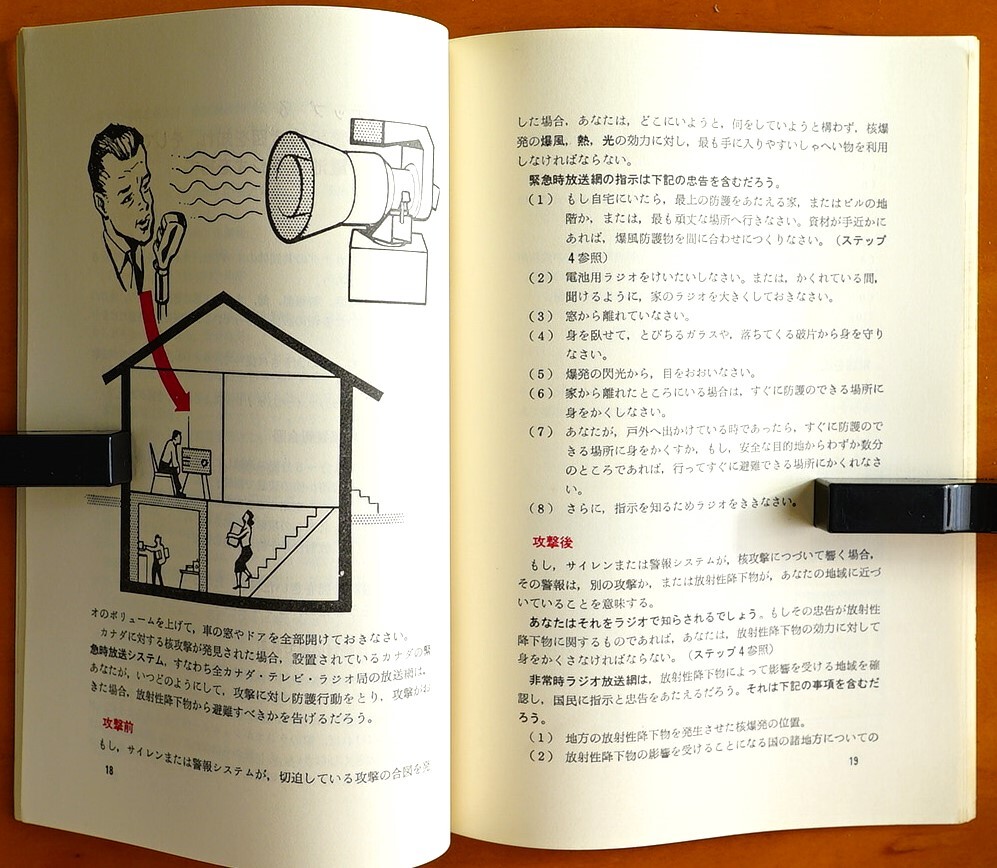 オのボリュームを上げて，車の窓やドアを全部開けておきなさい。
カナダに対する核攻撃が発見された場合，設置されているカナダの緊
急時放送システム，すなわち全カナダ・テレビ・ラジオ局の放送網は，
あなたが，いつどのようにして，攻撃に対し防護行動をとり，攻撃がお
きた場合，放射性降下物から避難すべきかを告げるだろう。
攻撃前
もし，サイレンまたは警報システムが，切迫している攻撃の合図を発
18
した場合，あなたは，どこにいようと，何をしていようと構わず，核爆
発の爆風，熱，光の効力に対し，最も手に入りやすいしゃへい物を利用
しなければならない。
緊急時放送網の指示は下記の忠告を含むだろう。
(1) もし自宅にいたら，最上の防護をあたえる家，またはビルの地
階か，または，最も頑丈な場所へ行きなさい。資材が手近かに
あれば，爆風防護物を間に合わせにつくりなさい。（ステップ
4参照）
(2) 電池用ラジオをけいたいしなさい。または，かくれている間，
聞けるように，家のラジオを大きくしておきなさい。
(3) 窓から離れていなさい。
(4) 身を臥せて，とびちるガラスや，落ちてくる破片から身を守り
なさい。
(5) 爆発の閃光から，目をおおいなさい。
(6) 家から離れたところにいる場合は，すぐに防護のできる場所に
身をかくしなさい。
(7) あなたが，戸外へ出かけている時であったら，すぐに防護ので
きる場所に身をかくすか，もし，安全な目的地からわずか数分
のところであれば，行ってすぐに避難できる場所にかくれなさ
い。
(8) さらに，指示を知るためラジオをききなさい。
攻撃後
もし，サイレンまたは警報システムが，核攻撃につづいて響く場合，
その警報は，別の攻撃か，または放射性降下物が，あなたの地域に近づ
いていることを意味する。
あなたはそれをラジオで知らされるでしょう。もしその忠告が放射性
降下物に関するものであれば，あなたは，放射性降下物の効力に対して
身をかくさなければならない。（ステップ4参照）
非常時ラジオ放送網は，放射性降下物によって影響を受ける地域を確
認し，国民に指示と忠告をあたえるだろう。それは下記の事項を含むだ
ろう。
(1) 地方の放射性降下物を発生させた核爆発の位置。
(2) 放射性降下物の影響を受けることになる国の諸地方についての
19